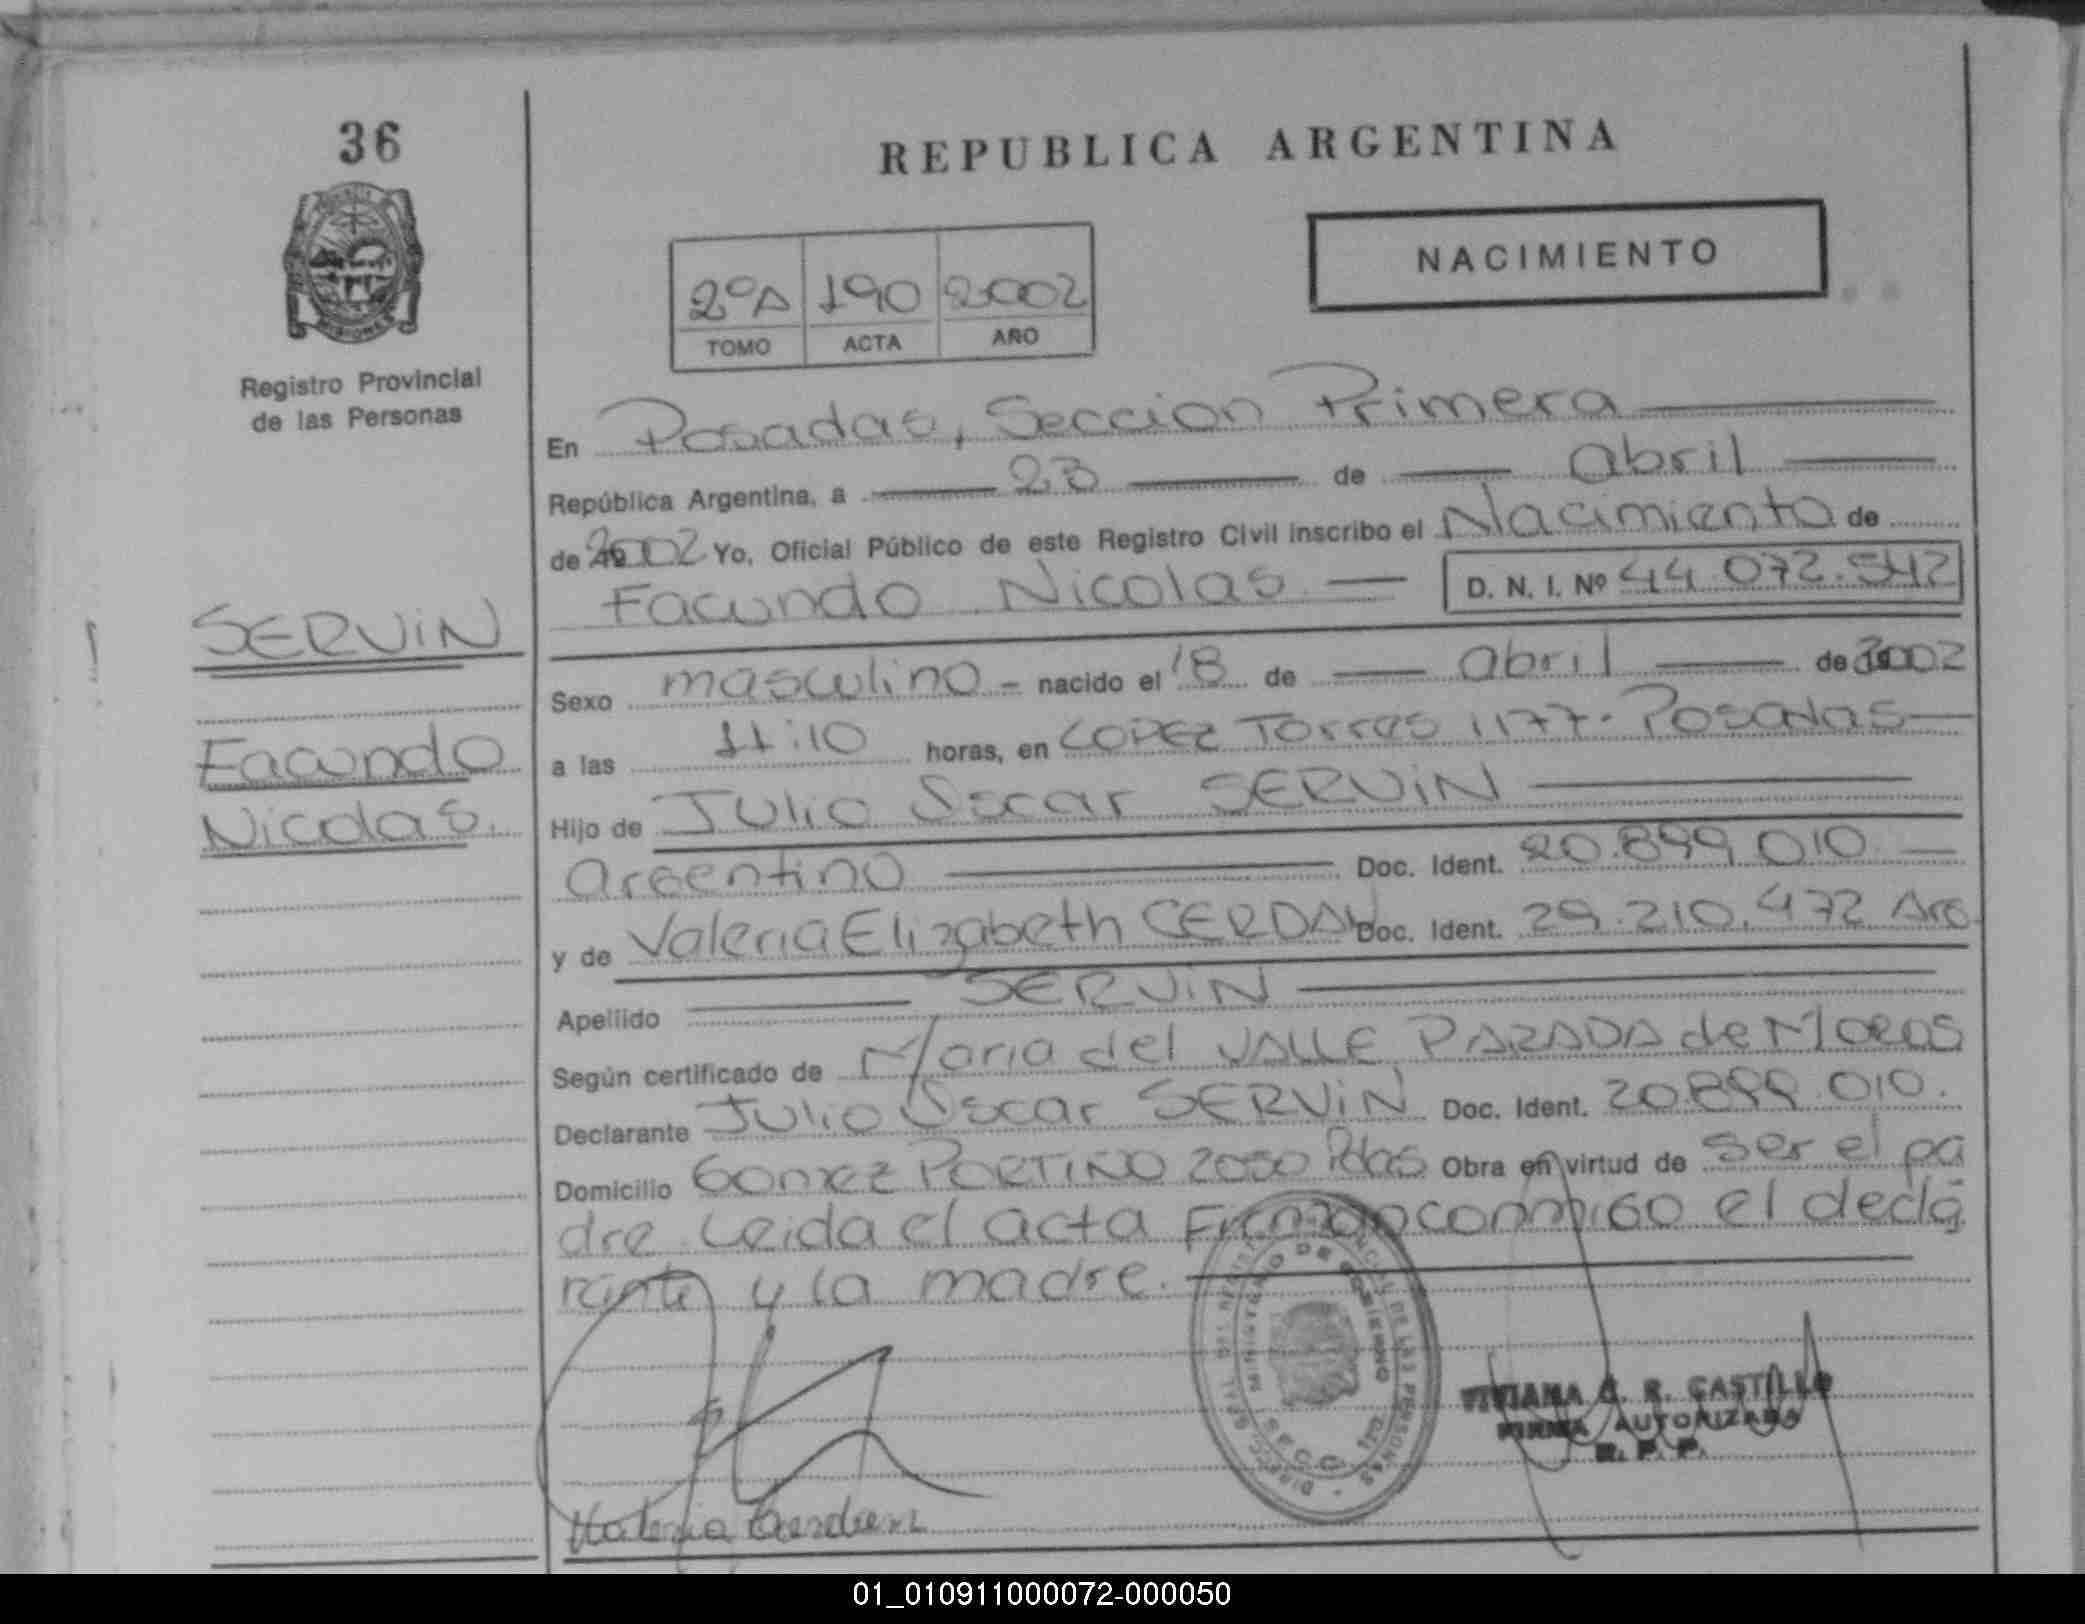 36
Registro Provincial
de las Personas
SERVIN
Facundo
Nicolas.
REPUBLICA ARGENTINA
NACIMIENTO
2ºA 190 2002
TOMO ACTA AÑO
En Posadas, Seccion Primera
República Argentina, a 23 de abril
de 2002 Yo, Oficial Público de este Registro Civil inscribo el Nacimiento de
Facundo Nicolas D. N. I. Nº 44.072.542
Sexo masculino - nacido el 18 de abril de 2002
a las 11:10 horas, en LOPEZ Torres 1177. Posadas
Hijo de Julio Oscar SERVIN
argentino Doc. Ident. 20.899.010
y de Valeria Elizabeth CERDAN Doc. Ident. 29.210.472 Arg.
Apellido SERVIN
Según certificado de Maria del VALLE PARADA de MOROS
Declarante Julio Oscar SERVIN Doc. Ident. 20.899.010.
Domicilio Gomez PORTINO 2050 Pdas Obra en virtud de ser el pa
dre. Leida el acta Firman conmigo el decla
rante y la madre.
MINISTERIO DE GOBIERNO
VIVIANA C. R. CASTILLO
FIRMA AUTORIZADA
R. P. P.
01_010911000072-000050